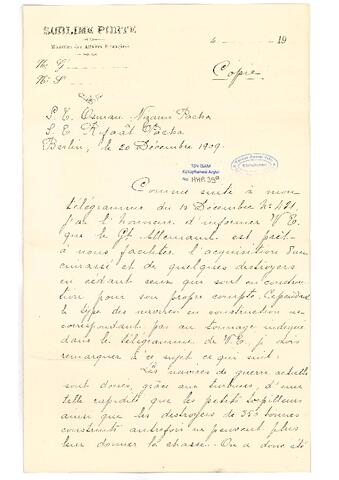 SUBLIME PORTE
Ministère des Affaires Étrangères
le 19
Nº G
Nº S
Copie
S. E. Osman Nizami Pacha
S. E. Rifaât Pacha
Berlin, le 20 Décembre 1909.
TDV İSAM
Kütüphanesi Arşivi
No
Comme suite à mon
télégramme du 18 Décembre Nº 421,
j'ai l'honneur d'informer V. E.
que le Gt Allemand est prêt
à nous faciliter l'acquisition d'un
cuirassé et de quelques destroyers
en cédant ceux qui sont en construc
tion pour son propre compte. Cependant
le type des navires en construction ne
correspondant pas au tonnage indiqué
dans le télégramme de V. E. je dois
remarquer à ce sujet ce qui suit:
Les navires de guerre actuels
sont doués, grâce aux turbines, d'une
telle rapidité que les petits torpilleurs
ainsi que les destroyers de 350 tonnes
construits autrefois ne peuvent plus
leur donner la chasse. On a donc été